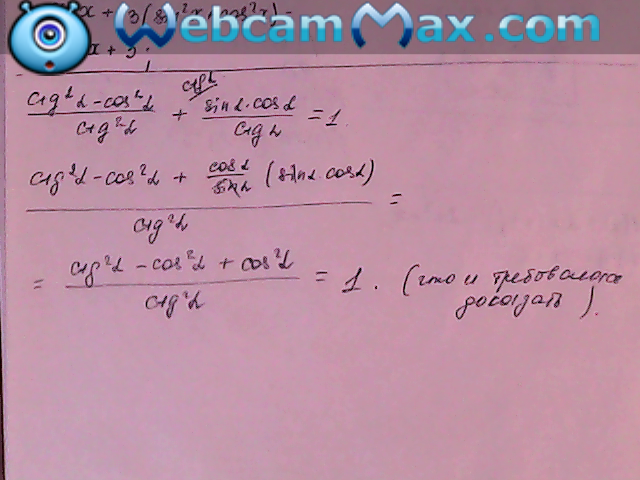 WebcamMax.com
x + 3(sin²x cos²x) =
x + 3
(ctg²α - cos²α)/ctg²α + ctgα (sinα · cosα)/ctgα = 1.
(ctg²α - cos²α + cosα/sinα (sinα cosα))/ctg²α =
= (ctg²α - cos²α + cos²α)/ctg²α = 1. (что и требовалось доказать).